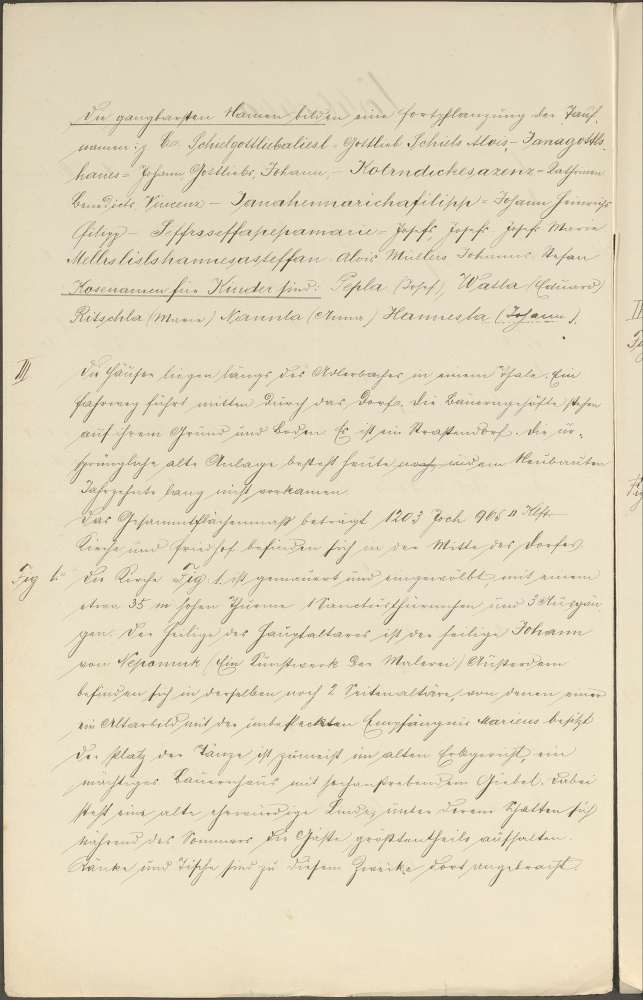 Die gangbarsten Namen bilden eine Fortpflanzung der Tauf-
namen: z. Schulgottliebaliesl = Gottlieb Schuls Alois, - Janagottls
hanes = Johann Gottliebs, Johann, - Kotrndickesazenz = Kathrinen
Benedicts Vincenz - Janahennarichafilipp = Johann Heinrichs
Filipp - Seffrsseffapepamarie = Josefs, Josefs Josefs Marie
Mellrslislshannesasteffan. Alois Müllers Johannes Stefan
Kosenamen für Kinder sind: Pepla (Josef), Watla (Eduard)
Ritschla (Marie) Nannla (Anna) Hannesla (Johann).
III Die Häuser liegen längs des Adlerbaches in einem Thale. Ein
Fahrweg führt mitten durch das Dorf. Die Bauerngehöfte stehen
auf ihrem Grund und Boden. Es ist ein Straßendorf. Die ur-
sprüngliche alte Anlage besteht heute noch, indem Neubauten
Jahrzehnte lang nicht vorkamen.
Das Gesammtflächenmaß beträgt 1203 Joch 905 □ Klft.
Kirche und Friedhof befinden sich in der Mitte des Dorfes.
Fig 1. Die Kirche Fig 1. ist gemauert und eingewölbt, mit einem
etwa 35 m hohen Thurme 1 Sanctusthürmchen und 3 Ausgän
gen. Der Heilige des Hauptaltares ist der heilige Johann
von Nepomuk (Ein Kunstwerk der Malerei) Außerdem
befinden sich in derselben noch 2 Seitenaltäre, von denen einer
ein Altarbild mit der unbefleckten Empfängnis Mariens besitzt
Der Platz der Tänze ist zumeist im alten Erbgericht, ein
mächtiges Bauernhaus mit hochanstrebendem Giebel. Dabei
steht eine alte ehrwürdige Linde, unter deren Schatten sich
während des Sommers die Gäste größtentheils aufhalten.
Bänke und Tische sind zu diesem Zwecke dort angebracht.